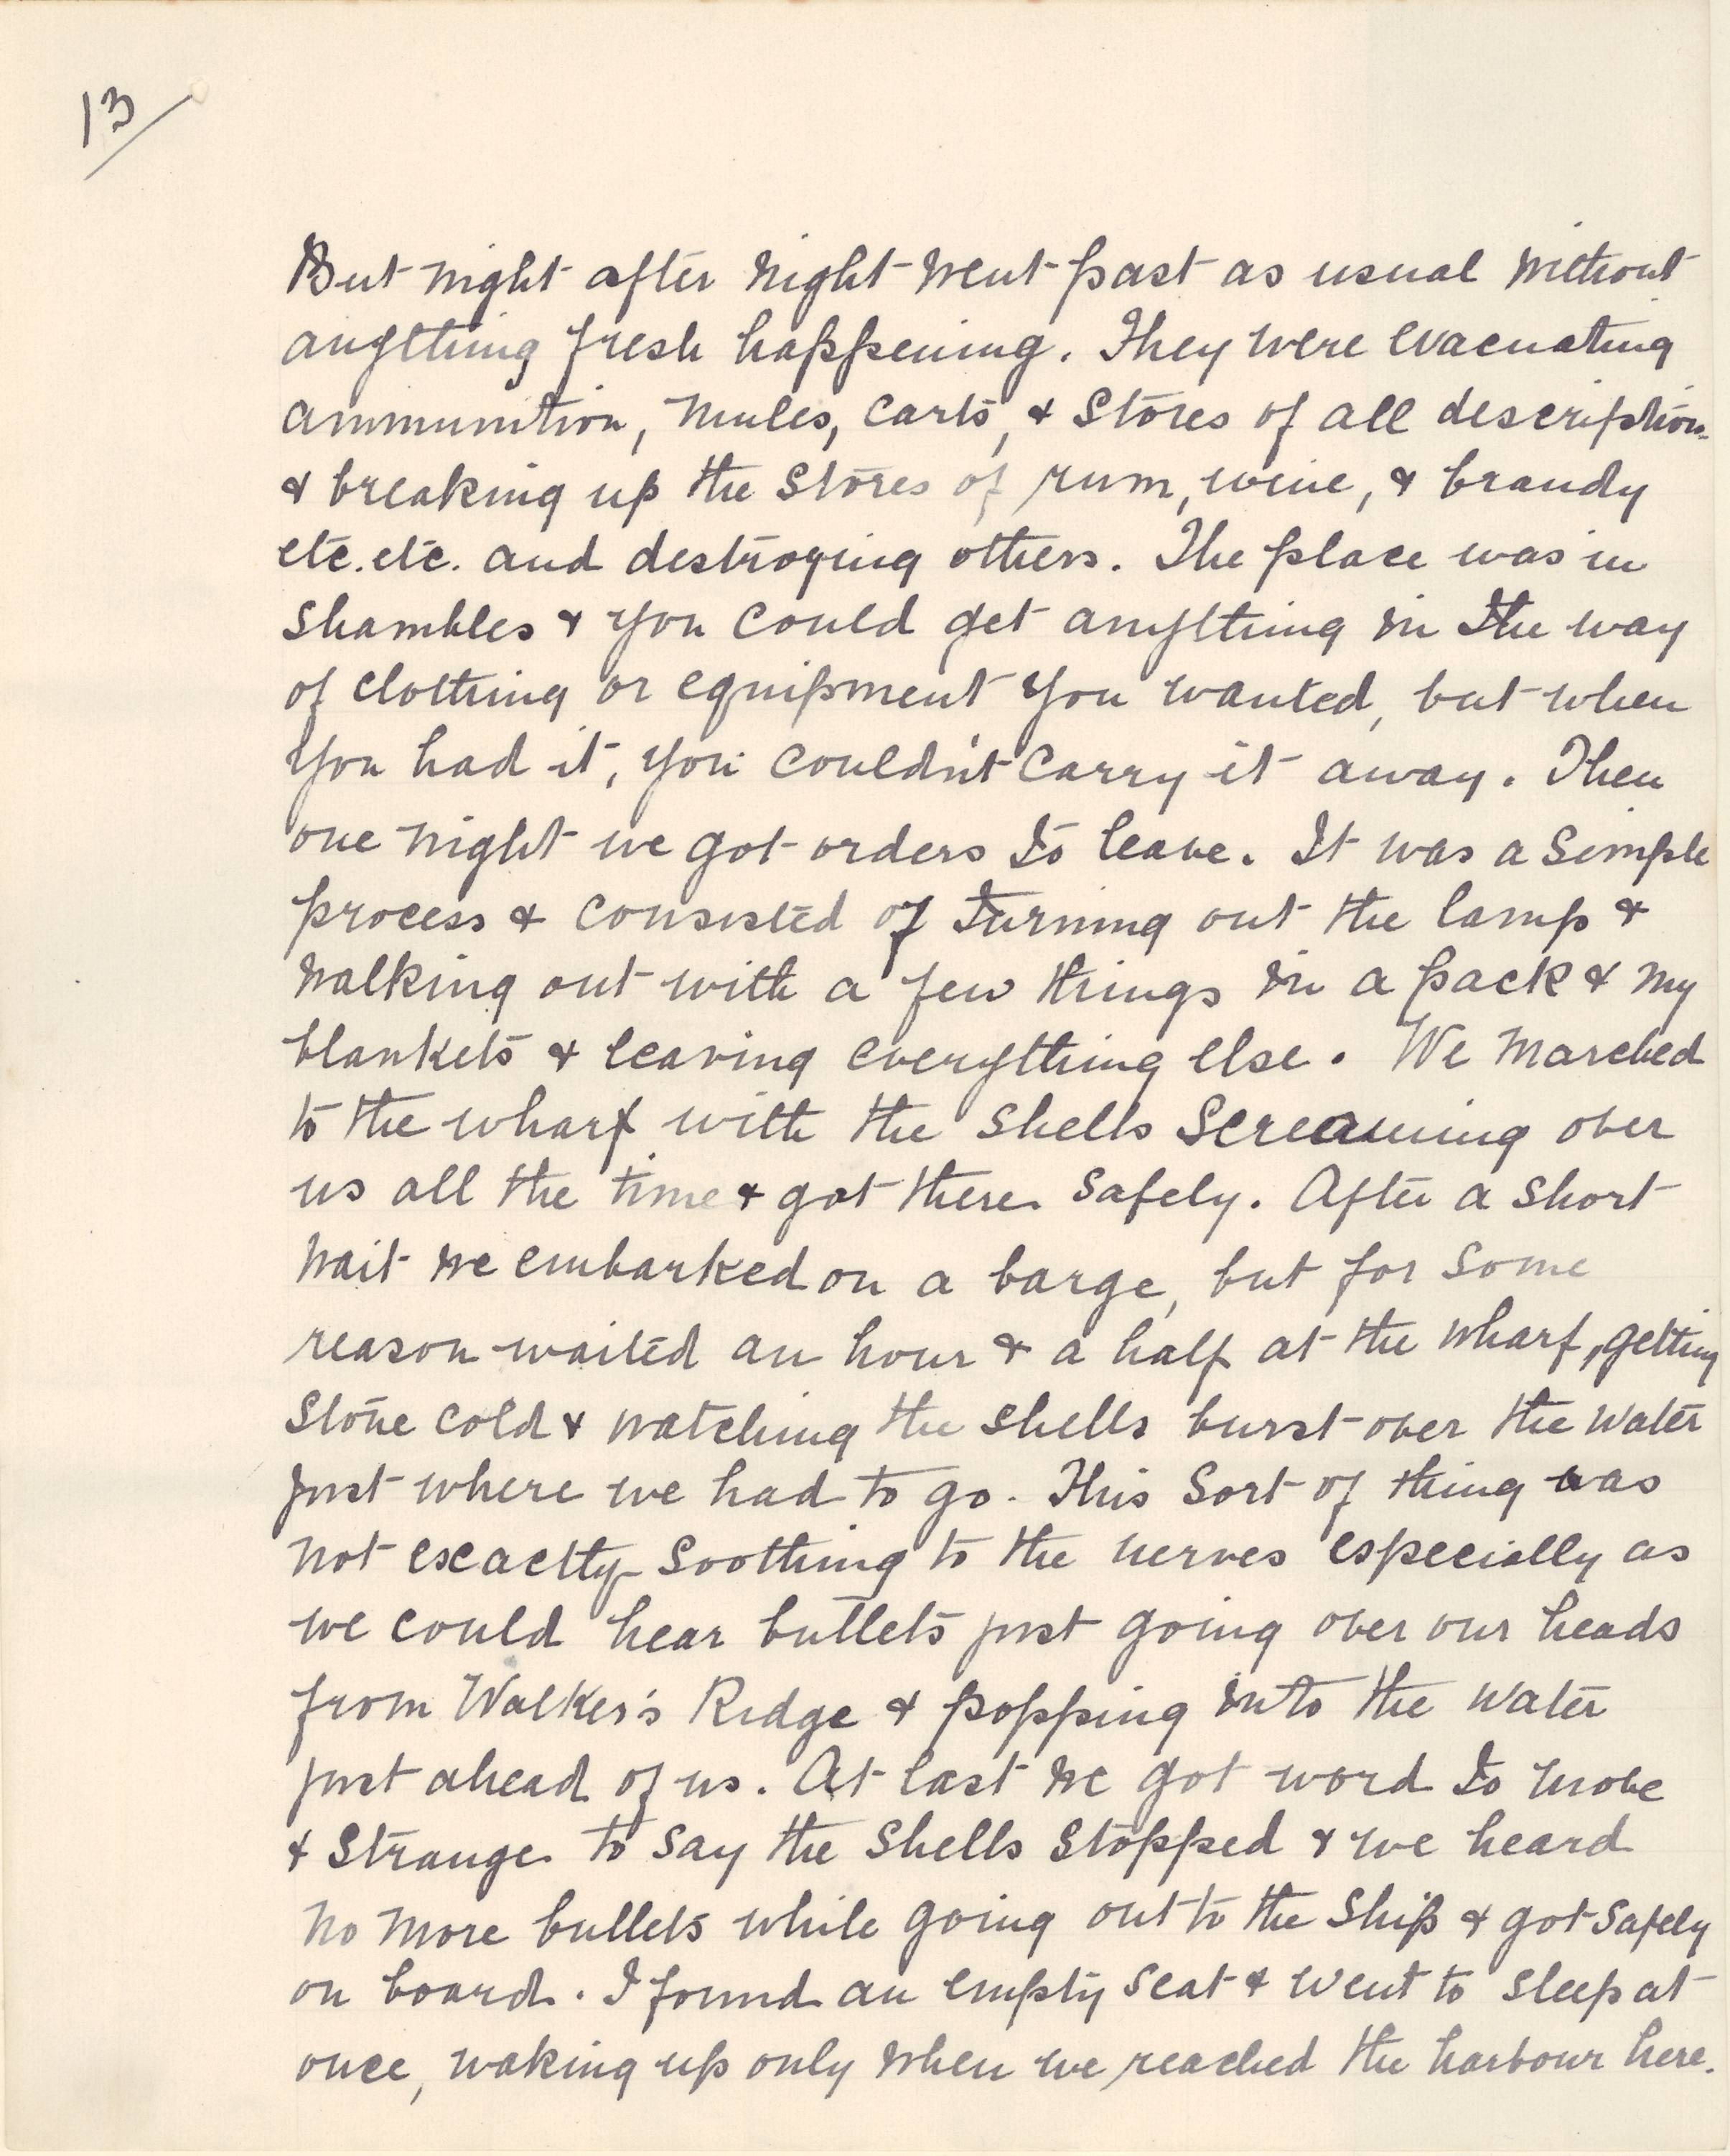 13
But night after night went past as usual without
anything fresh happening. They were evacuating
ammunition, mules, carts, & stores of all description
& breaking up the stores of rum, wine, & brandy
etc. etc. and destroying others. The place was in
shambles & you could get anything in the way
of clothing or equipment you wanted, but when
you had it, you couldn't carry it away. Then
one night we got orders to leave. It was a simple
process & consisted of turning out the lamp &
walking out with a few things in a pack & my
blankets & leaving everything else. We marched
to the wharf with the shells screaming over
us all the time & got there safely. After a short
wait we embarked on a barge, but for some
reason waited an hour & a half at the wharf, getting
stone cold & watching the shells burst over the water
just where we had to go. This sort of thing was
not exactly soothing to the nerves especially as
we could hear bullets just going over our heads
from Walker's Ridge & popping into the water
just ahead of us. At last we got word to move
& strange to say the shells stopped & we heard
no more bullets while going out to the ship & got safely
on board. I found an empty seat & went to sleep at
once, waking up only when we reached the harbour here.